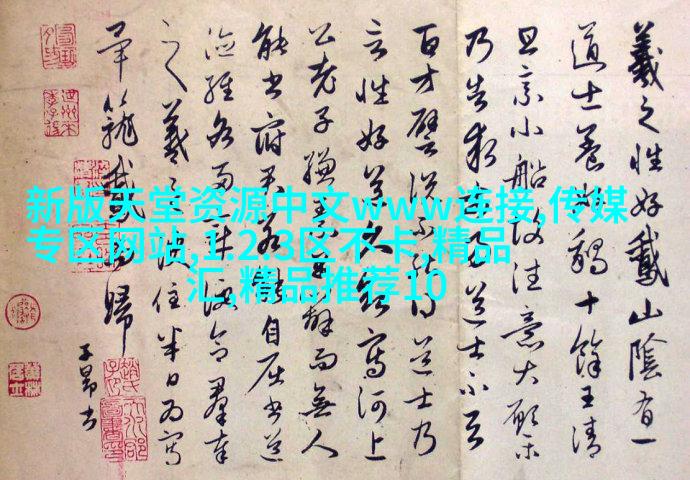 新版天堂资源中文www连接,传媒
专区网站,1.2.3区不卡,精品
汇,精品推荐10
羲之性好鵞山陰有一
道士養好鵝十餘王清
旦乘小船故往意大願樂
乃告求市易道士不与
百方譬說不能得道士乃
言性好道久欲寫河上
公老子縑素早辦而無人
能書府君若能自屈書道
德經各兩章便合羣奉
之羲之便住半日為寫
畢籠鵞而歸
子昂書